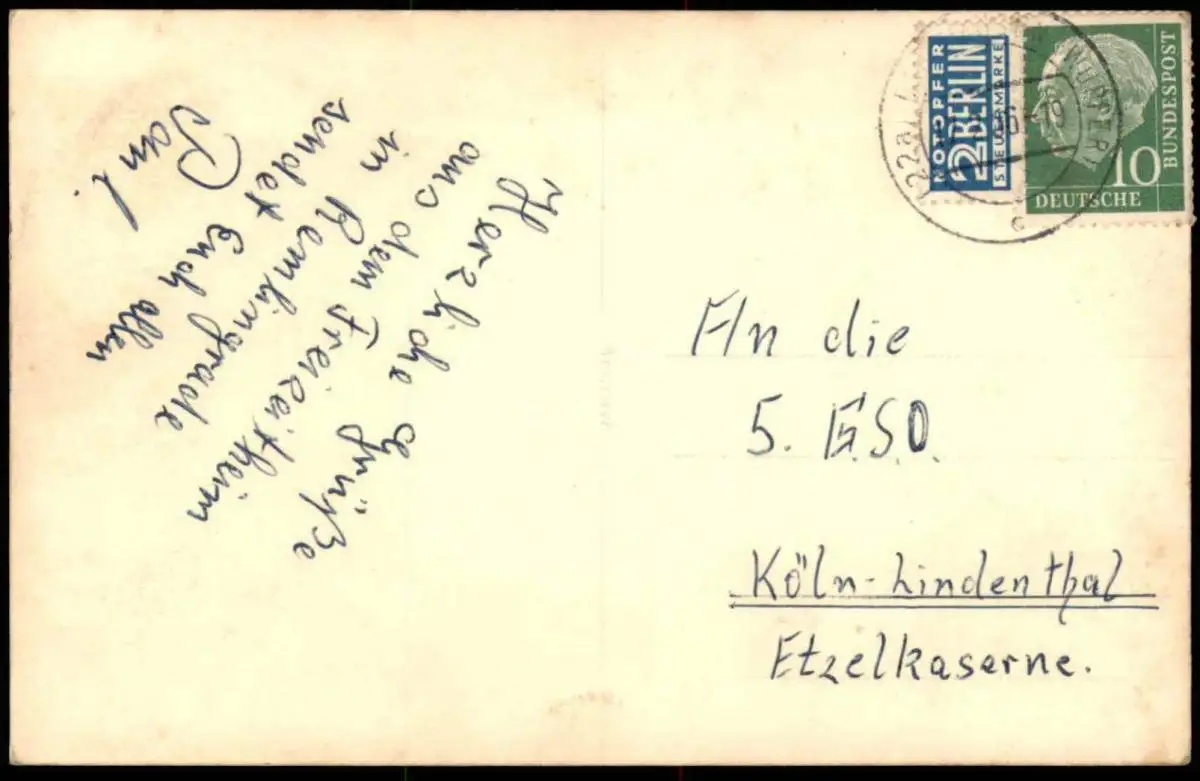 Herzliche Grüße
aus dem Freizeitheim
in Remlingrade
sendet Euch allen
Paul.
NOTOPFER
2 BERLIN
STEUERMARKE
10
DEUTSCHE
BUNDESPOST
(22a)
WUPPER
-19
c
An die
5. E.S.O.
Köln-Lindenthal
Etzelkaserne.